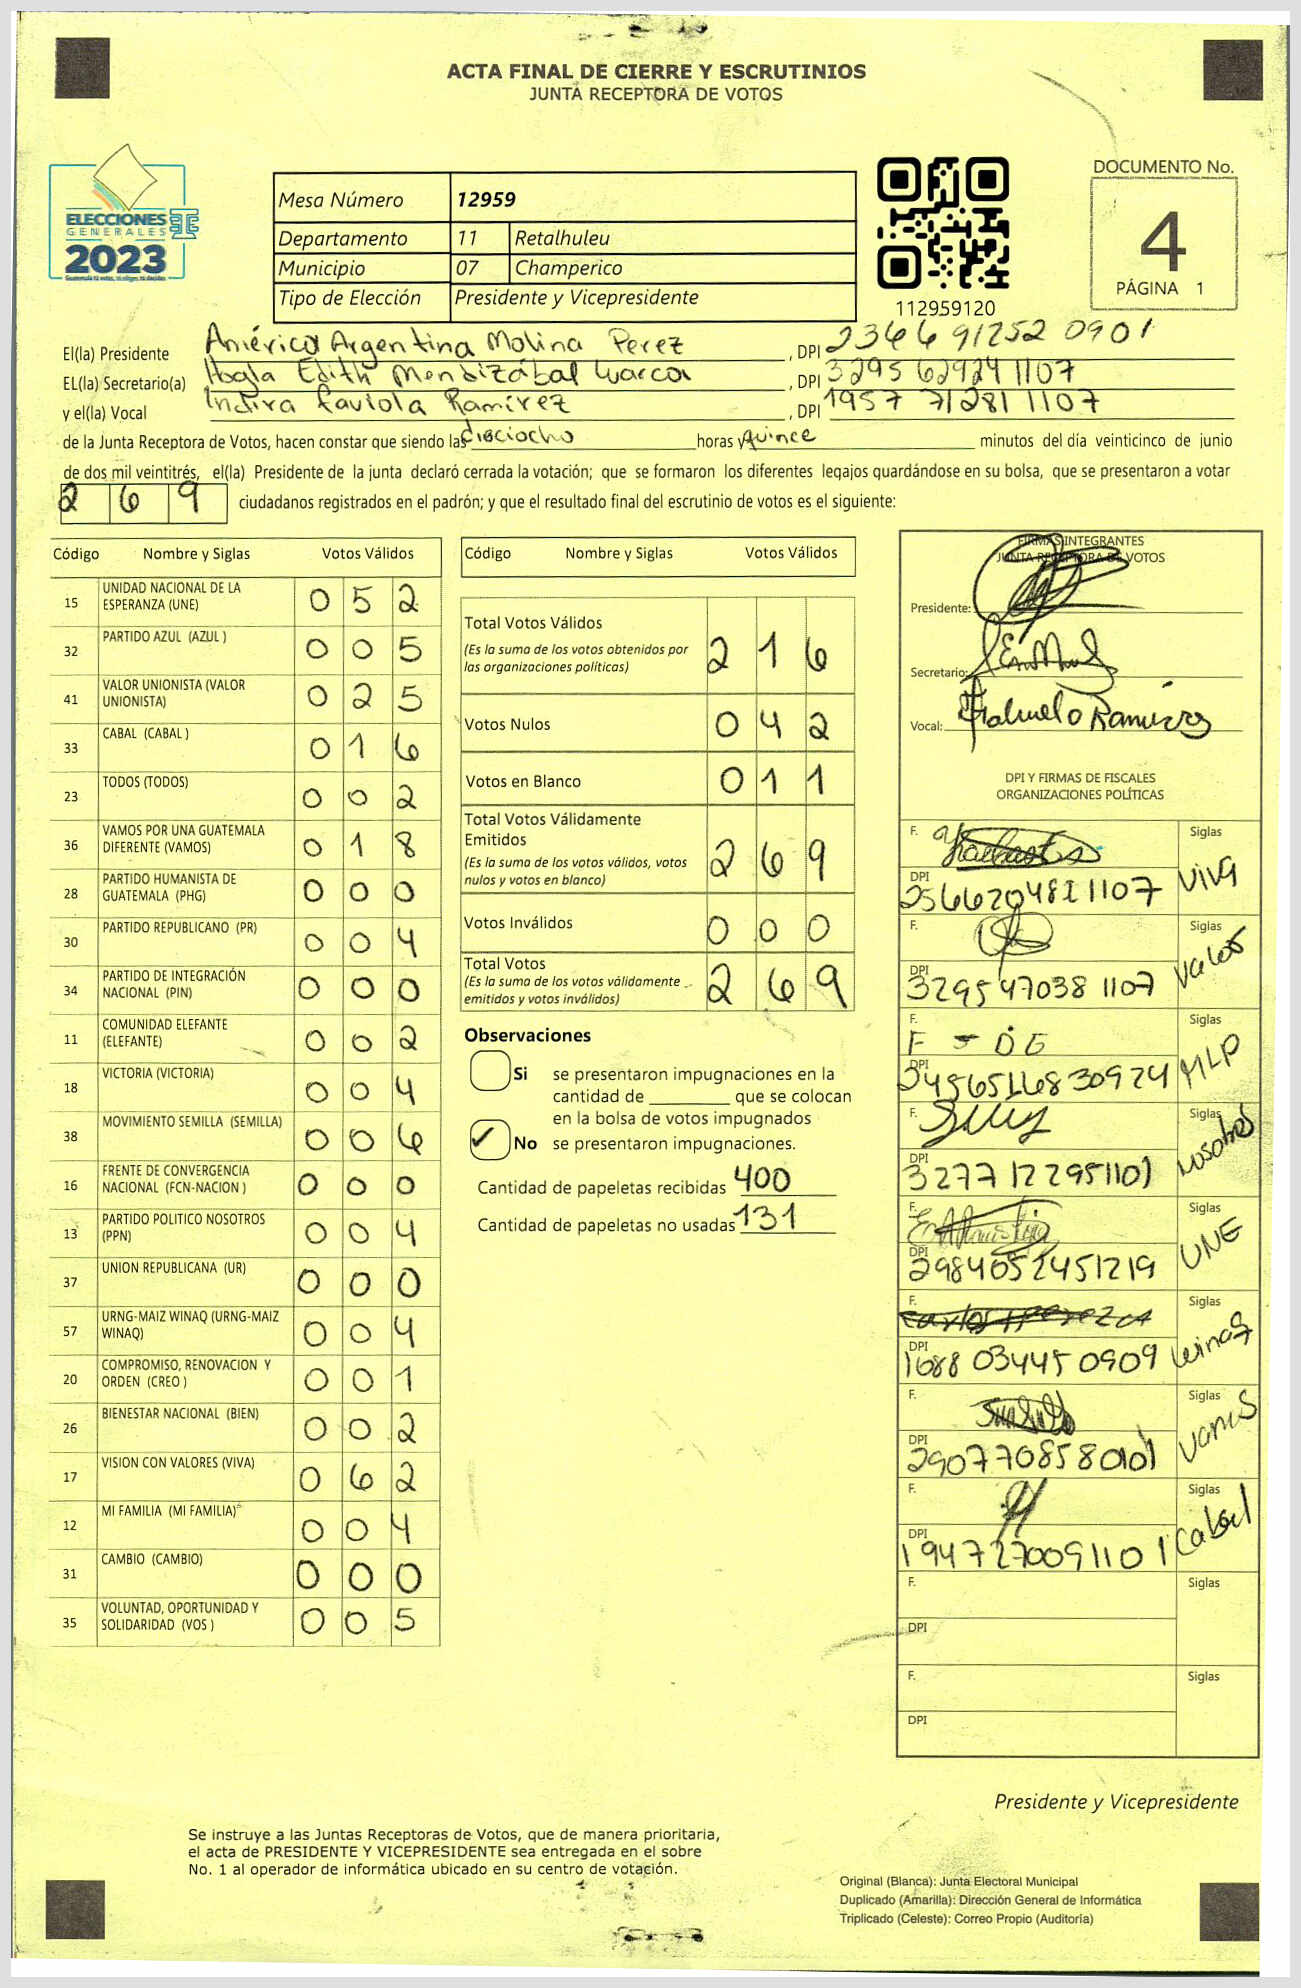 ACTA FINAL DE CIERRE Y ESCRUTINIOS
JUNTA RECEPTORA DE VOTOS
ELECCIONES
GENERALES
2023
Mesa Número 12959
Departamento 11 Retalhuleu
Municipio 07 Champerico
Tipo de Elección Presidente y Vicepresidente
112959120
DOCUMENTO No.
4
PÁGINA 1
El(la) Presidente Américo Argentina Molina Perez, DPI 2366 91252 0901
EL(la) Secretario(a) Edith Mendizábal, DPI 3295 62924 1107
y el(la) Vocal Indira Faviola Ramírez, DPI 1957 71281 1107
de la Junta Receptora de Votos, hacen constar que siendo las dieciocho horas y quince minutos del día veinticinco de junio
de dos mil veintitrés, el(la) Presidente de la junta declaró cerrada la votación; que se formaron los diferentes legajos guardándose en su bolsa, que se presentaron a votar
2 6 9 ciudadanos registrados en el padrón; y que el resultado final del escrutinio de votos es el siguiente:
Código Nombre y Siglas Votos Válidos
15 UNIDAD NACIONAL DE LA ESPERANZA (UNE) 0 5 2
32 PARTIDO AZUL (AZUL ) 0 0 5
41 VALOR UNIONISTA (VALOR UNIONISTA) 0 2 5
33 CABAL (CABAL ) 0 1 6
23 TODOS (TODOS) 0 0 2
36 VAMOS POR UNA GUATEMALA DIFERENTE (VAMOS) 0 1 8
28 PARTIDO HUMANISTA DE GUATEMALA (PHG) 0 0 0
30 PARTIDO REPUBLICANO (PR) 0 0 4
34 PARTIDO DE INTEGRACIÓN NACIONAL (PIN) 0 0 0
11 COMUNIDAD ELEFANTE (ELEFANTE) 0 0 2
18 VICTORIA (VICTORIA) 0 0 4
38 MOVIMIENTO SEMILLA (SEMILLA) 0 0 6
16 FRENTE DE CONVERGENCIA NACIONAL (FCN-NACION ) 0 0 0
13 PARTIDO POLITICO NOSOTROS (PPN) 0 0 4
37 UNION REPUBLICANA (UR) 0 0 0
57 URNG-MAIZ WINAQ (URNG-MAIZ WINAQ) 0 0 4
20 COMPROMISO, RENOVACION Y ORDEN (CREO ) 0 0 1
26 BIENESTAR NACIONAL (BIEN) 0 0 2
17 VISION CON VALORES (VIVA) 0 6 2
12 MI FAMILIA (MI FAMILIA) 0 0 4
31 CAMBIO (CAMBIO) 0 0 0
35 VOLUNTAD, OPORTUNIDAD Y SOLIDARIDAD (VOS ) 0 0 5
Código Nombre y Siglas Votos Válidos
Total Votos Válidos 2 1 6
(Es la suma de los votos obtenidos por
las organizaciones políticas)
Votos Nulos 0 4 2
Votos en Blanco 0 1 1
Total Votos Válidamente
Emitidos 2 6 9
(Es la suma de los votos válidos, votos
nulos y votos en blanco)
Votos Inválidos 0 0 0
Total Votos 2 6 9
(Es la suma de los votos válidamente
emitidos y votos inválidos)
Observaciones
Si se presentaron impugnaciones en la
cantidad de ________ que se colocan
en la bolsa de votos impugnados
✓ No se presentaron impugnaciones.
Cantidad de papeletas recibidas 400
Cantidad de papeletas no usadas 131
FIRMAS INTEGRANTES
JUNTA RECEPTORA DE VOTOS
Presidente:
Secretario:
Vocal: Ramirez
DPI Y FIRMAS DE FISCALES
ORGANIZACIONES POLÍTICAS
F. Siglas VIVA
DPI 2566204811107
F. Siglas Valor
DPI 329547038 1107
F. Siglas MLP
DPI 3456516830924
F. Siglas Nosotros
DPI 3277122951101
F. Siglas UNE
DPI 2984052451219
F. Siglas Winaq
DPI 1688 03445 0909
F. Siglas Vamos
DPI 2907708580101
F. Siglas Cabal
DPI 1947270091101
F. Siglas
DPI
F. Siglas
DPI
Presidente y Vicepresidente
Se instruye a las Juntas Receptoras de Votos, que de manera prioritaria,
el acta de PRESIDENTE Y VICEPRESIDENTE sea entregada en el sobre
No. 1 al operador de informática ubicado en su centro de votación.
Original (Blanca): Junta Electoral Municipal
Duplicado (Amarilla): Dirección General de Informática
Triplicado (Celeste): Correo Propio (Auditoría)